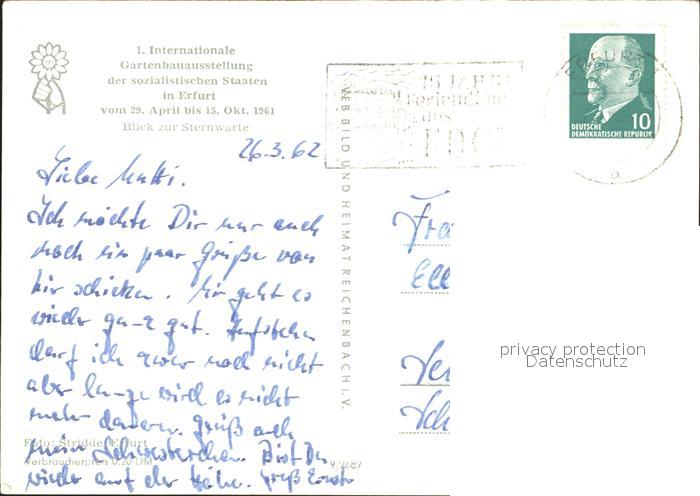 1. Internationale
Gartenbauausstellung
der sozialistischen Staaten
in Erfurt
vom 29. April bis 15. Okt. 1961
Blick zur Sternwarte
26.3.62
Liebe Mutti.
Ich möchte Dir nur auch
noch ein paar Grüße von
hir schicken. Mir geht es
wieder ganz gut. Aufstehen
darf ich zwar noch nicht
aber lange wird es nicht
mehr dauern. Grüß auch
mein Schwesterchen. Bist Du
wieder auf der Höhe. Gruß
Foto: Stridde, Erfurt
Verbraucherpreis 0,20 DM
VEB BILD UND HEIMAT REICHENBACH i. V.
15 JAHRE
Feriendienst
des
FDGB
ERFURT
10
DEUTSCHE
DEMOKRATISCHE REPUBLIK
privacy protection
Datenschutz